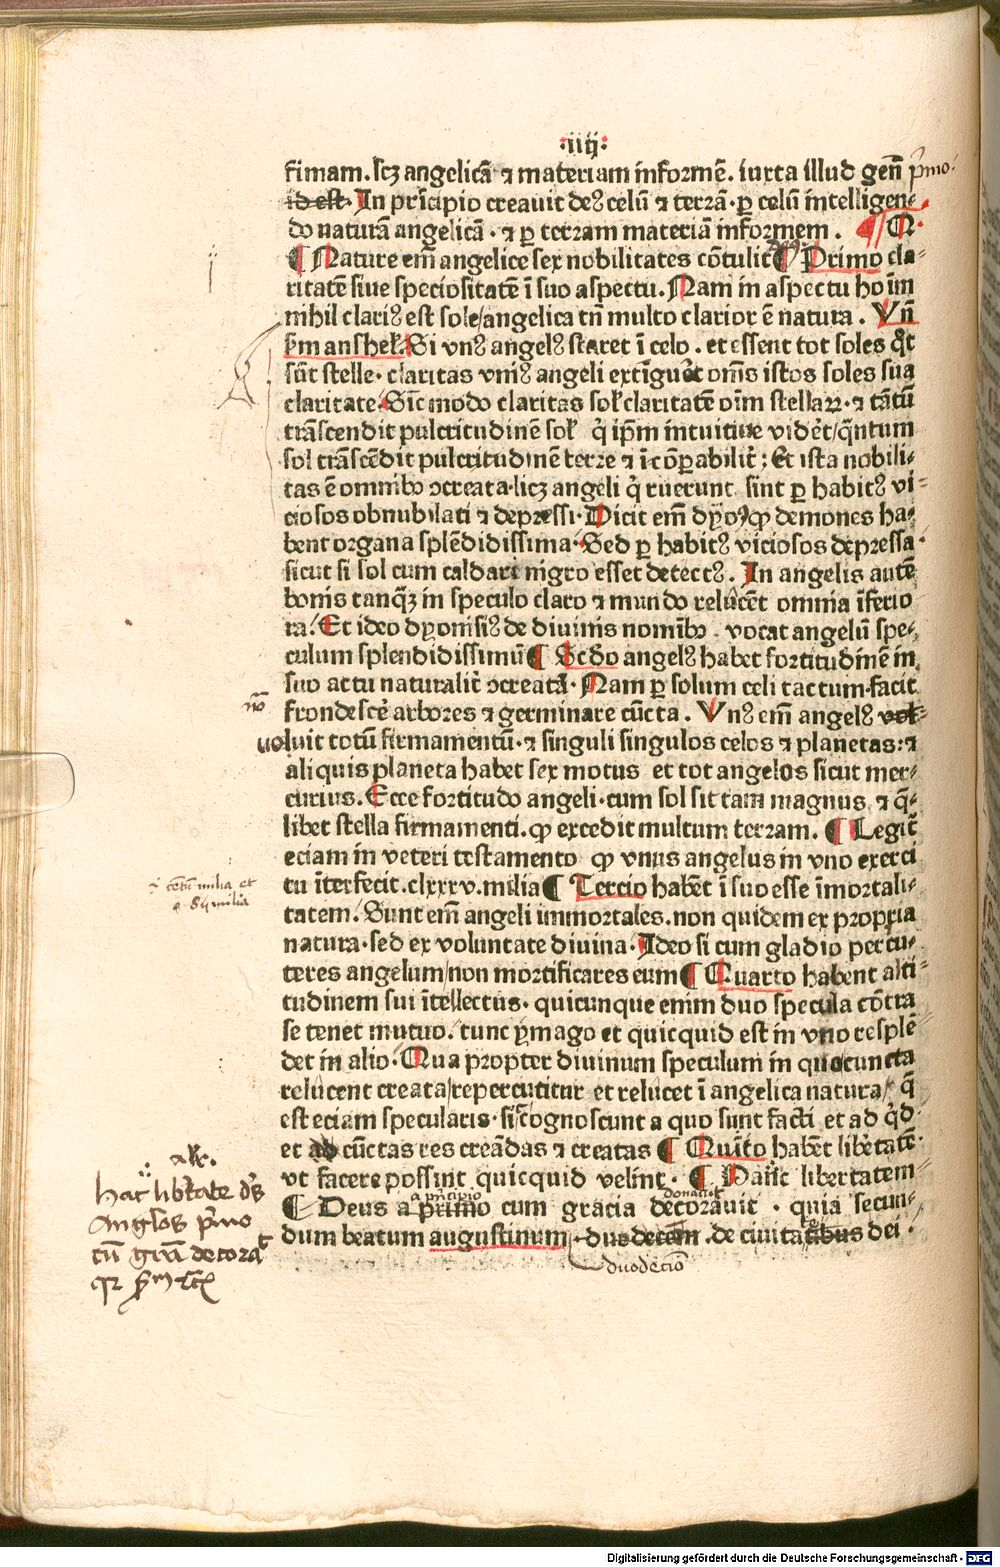 ·iiij·
simam. scz angelicā ⁊ materiam informē. iuxta illud geñ pͥmo·
id est. In pricipio creauit deꝰ celū ⁊ terrā· ꝑ celū intelligen⸗
do naturā angelicā · ⁊ ꝑ terram materiā informem . ¶ N·
¶ Nature em̄ angelice sex nobilitates cōtulit ¶ Primo cla⸗
ritatē siue speciositatē ī suo aspectu. Nam in aspectu hoīm
nihil clariꝰ est sole/angelica tn̄ multo clarior ē natura . Vn̄
Si vnꝰ angelꝰ staret ī celo . et essent tot soles qͦt
sūt stelle· claritas vniꝰ angeli extīgueret om̄s istos soles sua
claritate. Sic modo claritas sol̓ claritatē oīm stellaꝝ· ⁊ tātū
trāscendit pulcritudinē sol̓ qͥ ip̄m intuitiue videt/ qͣntum
sol trāscēdit pulcritudinē terre ⁊ īcōꝑabilit̓: Et ista nobili⸗
tas ē omnibꝰ ꝯcreata·licz angeli qͥ ruerunt sint ꝑ habitꝰ vi⸗
ciosos obnubilati ⁊ depressi· Dicit em̄ dyoꝰ ꝙ demones ha⸗
bent organa splēdidissima· Sed ꝑ habitꝰ viciosos depressa·
sicut si sol cum caldari nigro esset detectꝰ . In angelis autē
bonis tanqͣ in speculo claro ⁊ mundo relucēt omnia īferio
ra. Et ideo dyonisiꝰ de diuinis nominibꝰ vocat angelū spe⸗
culum splendidissimū ¶ Scd̓o angelꝰ habet fortitudinē in
suo actu naturalit̓ ꝯcreatā· Nam ꝑ solum celi tactum·facit
frondescē arbores ⁊ germinare cūcta . Vnꝰ em̄ angelꝰ vol⸗
uoluit totū firmamentū· ⁊ singuli singulos celos ⁊ planetas: ⁊
aliquis planeta habet sex motus et tot angelos sicut mer⸗
curius. Ecce fortitudo angeli·cum sol sit tam magnus ⁊ qͣ⸗
libet stella firmamenti. ꝙ excedit multum terram. ¶ Legit̓
eciam in veteri testamento ꝙ vnus angelus in vno exerci
tu īterfecit. clxxxv. milia ¶ Tercio habēt ī suo esse īmortali⸗
tatem. Sunt em̄ angeli immortales. non quidem ex propria
natura· sed ex voluntate diuina· Ideo si cum gladio percu⸗
teres angelum/non mortificares eum ¶ Quarto habent alti⸗
tudinem sui ītellectus· quicunque enim duo specula cōtra
se tenet mutuo. tunc ymago et quicquid est in vno resplē⸗
det in alio· Qua propter diuinum speculum in quo cuncta
relucent creata/repercutitur et relucet ī angelica natura/ q̄
est eciam specularis· sic cognoscunt a quo sunt facti et ad qͥd·
et ad cūctas res creādas ⁊ creatas ¶ Quīto habēt libertatē·
vt facere possint quicquid velint· ¶ Hāc libertatem
¶ Deus a primo cum gracia decorauit · quia secun⸗
dum beatum augustinum· duodecim .de ciuitatibus dei ·
a pͥncipio
duodecio
hac libtate dꝰ
Anglos pͥmo
cū grā decora